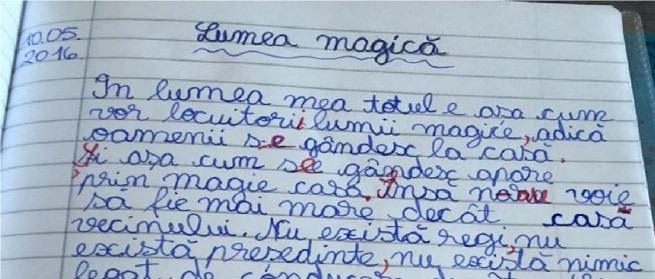 10.05.
2016
Lumea magică
In lumea mea totul e asa cum
vor locuitorii lumii magice, adică
oamenii se gândesc la casă.
Și asa cum se gândesc apare
prin magie casa. Insa n-are voie
să fie mai mare decât casa
vecinului. Nu există regi, nu
există presedinte, nu există nimic
legat de